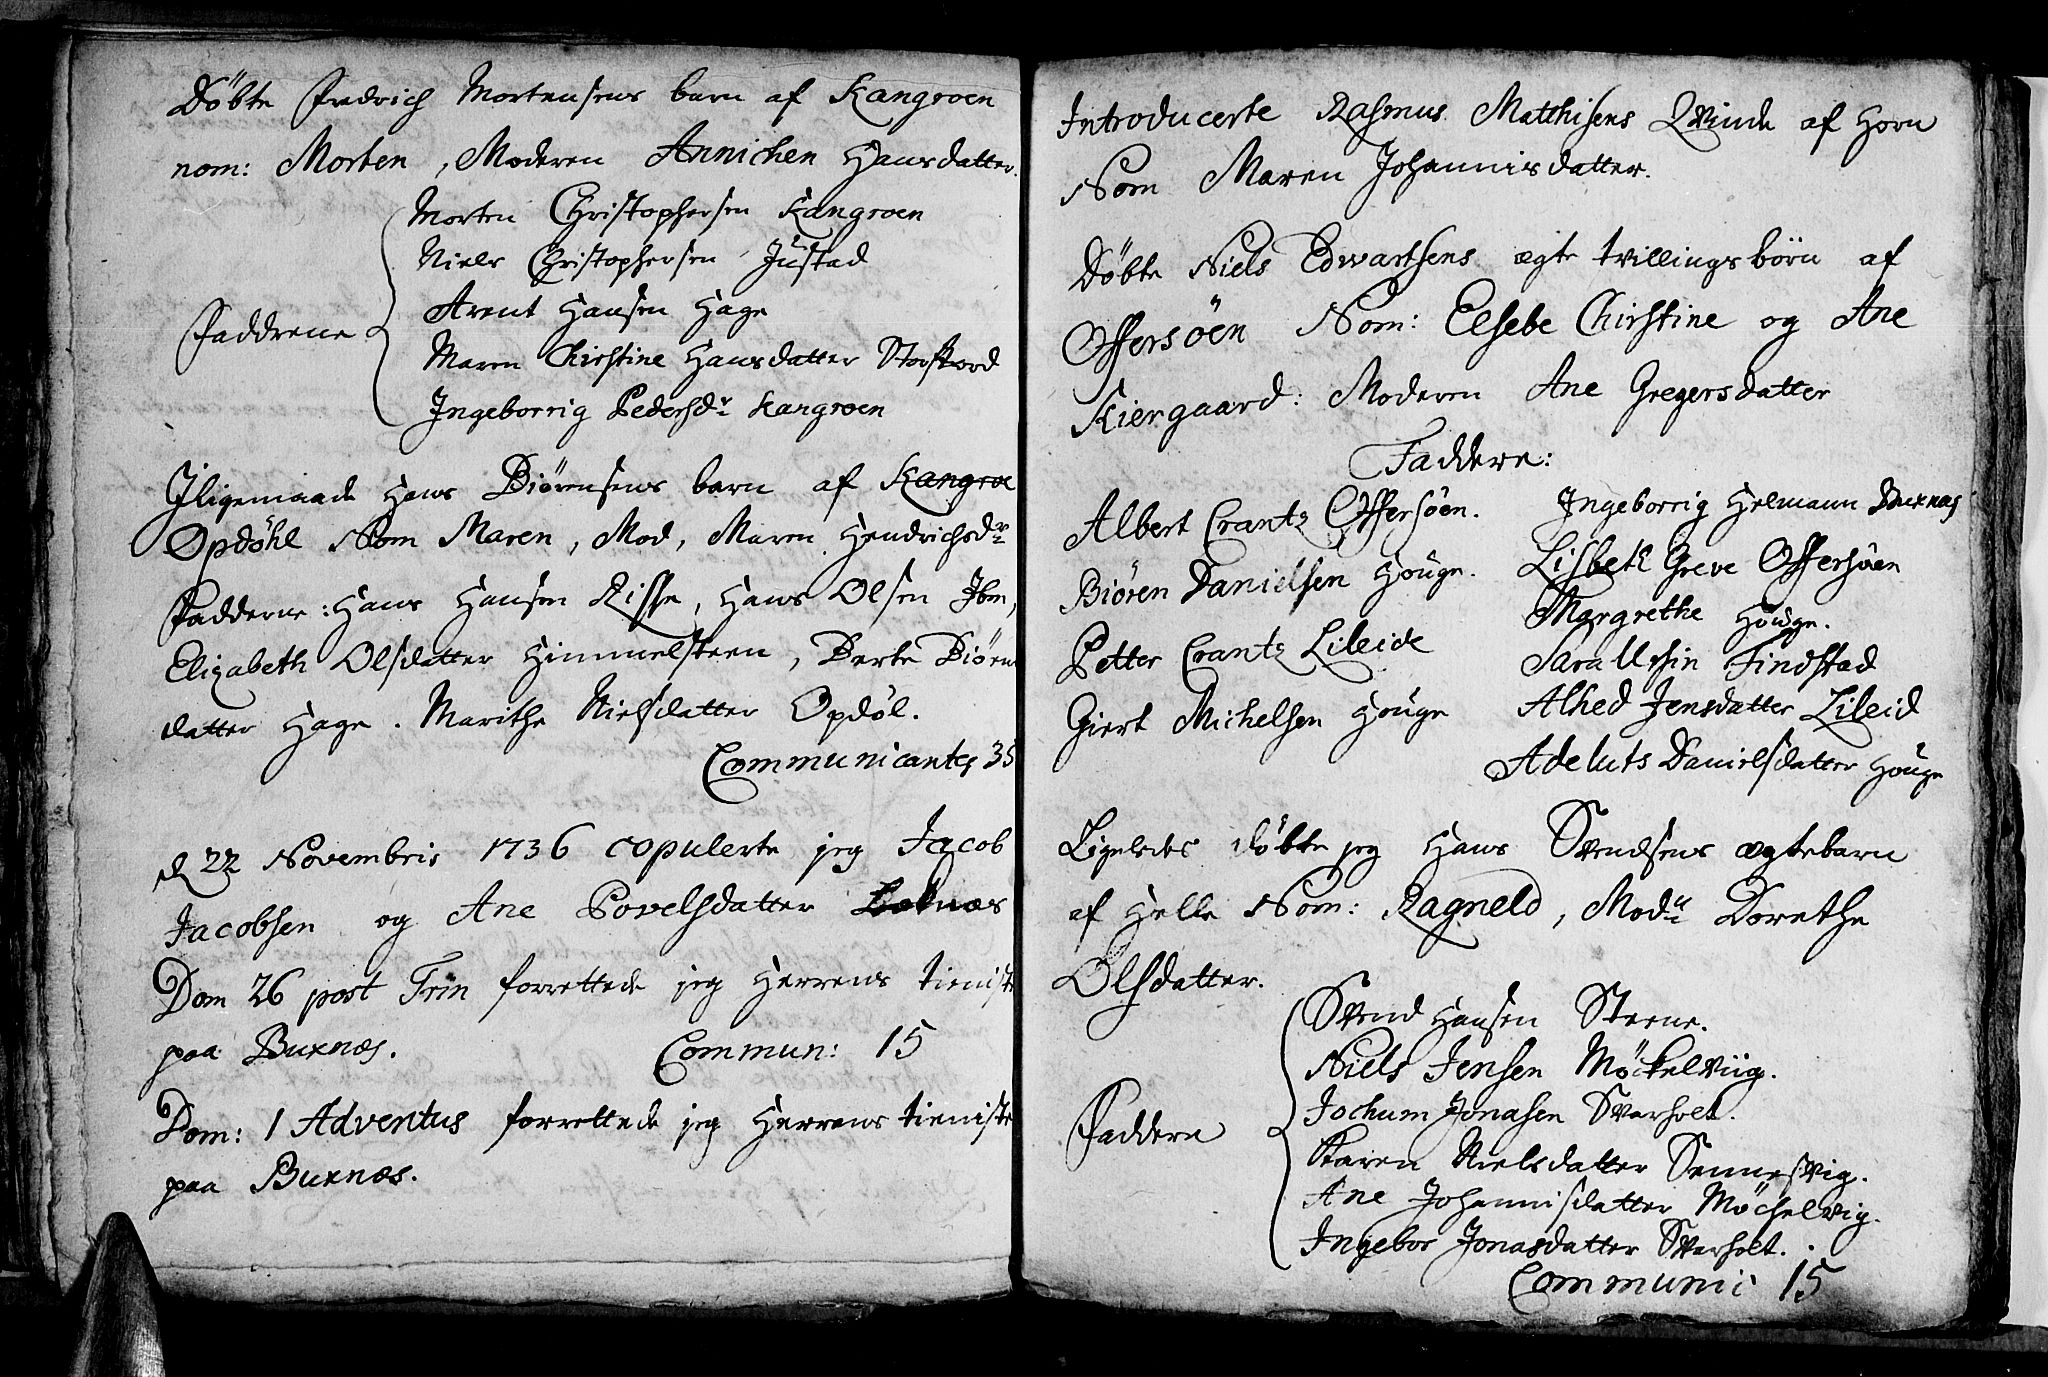 Døbte Fredrich Mortensens barn af Kangroen
nom: Morten, Moderen Annichen Hansdatter.
Morten Christophersen Kangroen
Niels Christophersen Justad
Arent Hansen Hage
Faddrene
Maren Chirstine Hansdatter Storfiord
Ingeborrig Pedersdr Kangroen
Jligemaade Hans Biørensens barn af Kangroe
Opdøhl Nom Maren, Mod, Maren Hendrichsdr
Fadderne: Hans Hansen Risse, Hans Olsen Ibm,
Elizabeth Olsdatter Himmelsteen, Berte Biørens
datter Hage. Marithe Nielsdatter Opdøl.
Communicantes 35
d 22 Novembris 1736 copulerte jeg Jacob
Jacobsen og Ane Povelsdatter
Dom 26 post Trin forrettede jeg Herrens tieniste
paa Buxnæs. Commun: 15
Dom: 1 Adventus forrettede jeg Herrens tieniste
paa Buxnæs.
Introducerte Rasmus Matthisens Qvinde af Horn
Nom Maren Johannisdatter.
Døbte Niels Edwartsens ægte tvillingsbörn af
Offersöen Nom: Elsebe Chirstine og Ane
Kiergaard: Moderen Ane Gregersdatter
Faddere:
Albert Crantz Offersöen.
Biören Danielsen Houge.
Petter Crantz Lileide
Giert Michelsen Houge
Ingeborrig Helmann Buxnas
Lisbeth Greve Offersöen
Margrethe Houge.
Sara Ursin Findstad
Alhed Jensdatter Lileid
Adeluts Danielsdatter Houge
Ligeledes döbte jeg Hans Svendsens ægtebarn
af Helle Nom: Ragneld, Modn Dorethe
Olsdatter.
Svend Hansen Steene.
Niels Jensen Möckelviig.
Jochum Jonasen Svarholt.
Faddere
Karen Nielsdatter Sennesvig.
Ane Johannisdatter Möchelvig.
Ingebor Jonasdatter Svarholt.
Communi: 15